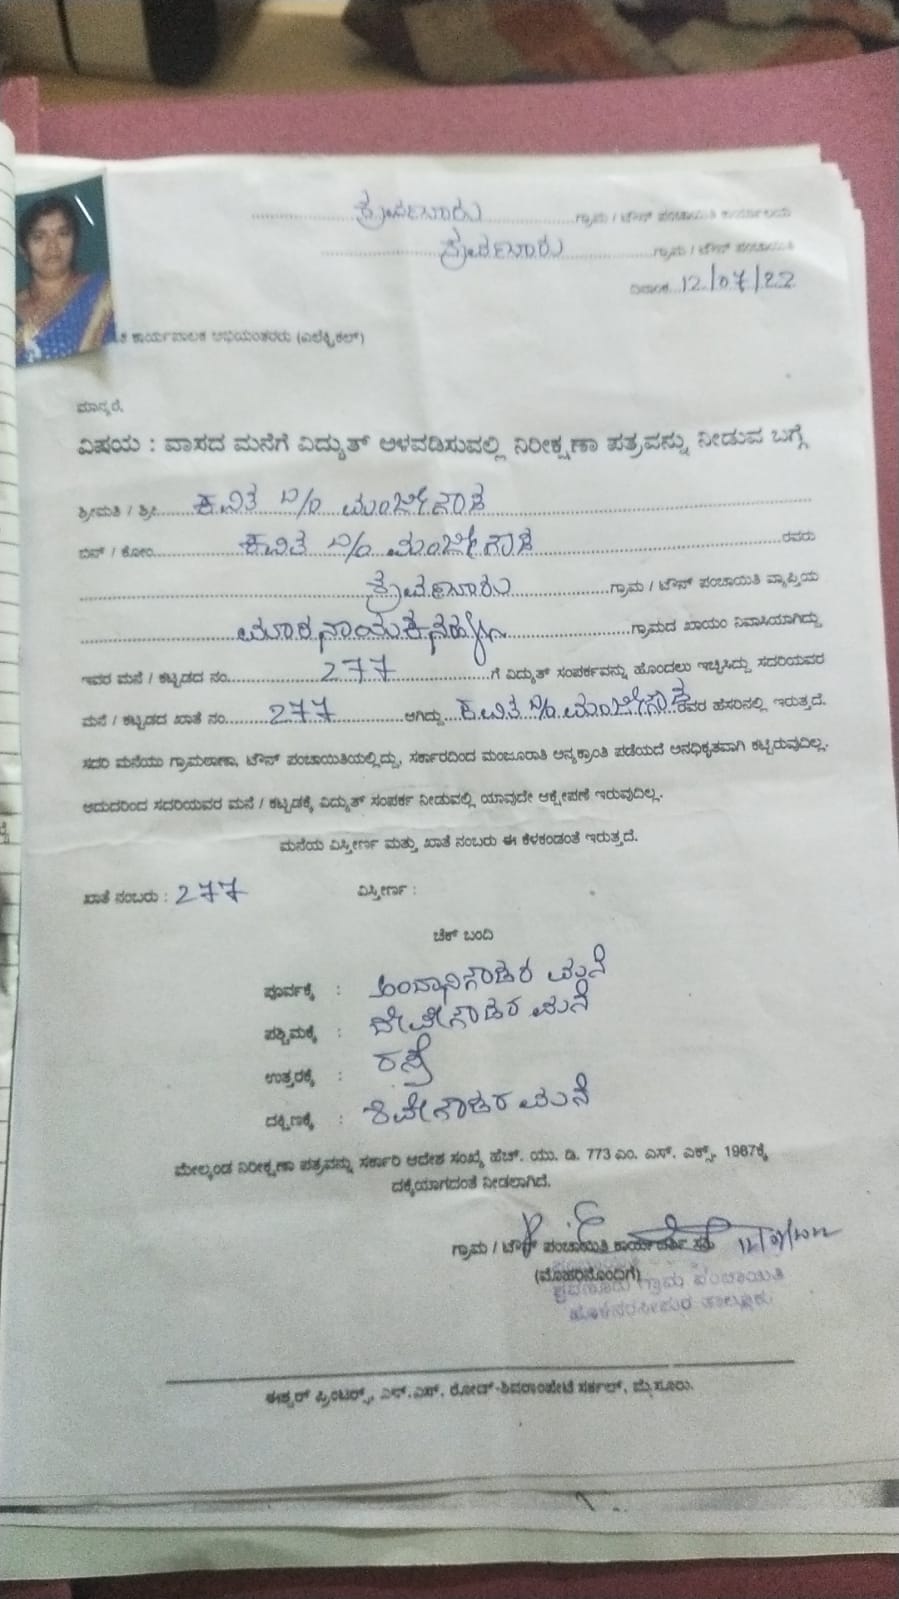 ಶ್ರವಣೂರು ಗ್ರಾಮ / ಟೌನ್ ಪಂಚಾಯಿತಿ ಕಾರ್ಯಾಲಯ
ಶ್ರವಣೂರು ಗ್ರಾಮ / ಟೌನ್ ಪಂಚಾಯಿತಿ
ದಿನಾಂಕ 12/07/22
ಕಾರ್ಯಪಾಲಕ ಅಭಿಯಂತರರು (ಎಲೆಕ್ಟ್ರಿಕಲ್)
ಮಾನ್ಯರೆ,
ವಿಷಯ : ವಾಸದ ಮನೆಗೆ ವಿದ್ಯುತ್ ಅಳವಡಿಸುವಲ್ಲಿ ನಿರೀಕ್ಷಣಾ ಪತ್ರವನ್ನು ನೀಡುವ ಬಗ್ಗೆ
ಶ್ರೀಮತಿ / ಶ್ರೀ ಕವಿತ W/O ಮಂಜೇಗೌಡ
ಬಿನ್ / ಕೋಂ ಕವಿತ W/O ಮಂಜೇಗೌಡ ರವರು
ಶ್ರವಣೂರು ಗ್ರಾಮ / ಟೌನ್ ಪಂಚಾಯಿತಿ ವ್ಯಾಪ್ತಿಯ
ಗ್ರಾಮದ ಖಾಯಂ ನಿವಾಸಿಯಾಗಿದ್ದು
ಇವರ ಮನೆ / ಕಟ್ಟಡದ ನಂ. 277 ಗೆ ವಿದ್ಯುತ್ ಸಂಪರ್ಕವನ್ನು ಹೊಂದಲು ಇಚ್ಛಿಸಿದ್ದು ಸದರಿಯವರ
ಮನೆ / ಕಟ್ಟಡದ ಖಾತೆ ನಂ. 277 ಆಗಿದ್ದು ಕವಿತ W/O ಮಂಜೇಗೌಡ ರವರ ಹೆಸರಿನಲ್ಲಿ ಇರುತ್ತದೆ.
ಸದರಿ ಮನೆಯು ಗ್ರಾಮಠಾಣಾ, ಟೌನ್ ಪಂಚಾಯಿತಿಯಲ್ಲಿದ್ದು, ಸರ್ಕಾರದಿಂದ ಮಂಜೂರಾತಿ ಅನ್ಯಕ್ರಾಂತಿ ಪಡೆಯದೆ ಅನಧಿಕೃತವಾಗಿ ಕಟ್ಟಿರುವುದಿಲ್ಲ.
ಆದುದರಿಂದ ಸದರಿಯವರ ಮನೆ / ಕಟ್ಟಡಕ್ಕೆ ವಿದ್ಯುತ್ ಸಂಪರ್ಕ ನೀಡುವಲ್ಲಿ ಯಾವುದೇ ಆಕ್ಷೇಪಣೆ ಇರುವುದಿಲ್ಲ.
ಮನೆಯ ವಿಸ್ತೀರ್ಣ ಮತ್ತು ಖಾತೆ ನಂಬರು ಈ ಕೆಳಕಂಡಂತೆ ಇರುತ್ತದೆ.
ಖಾತೆ ನಂಬರು : 277 ವಿಸ್ತೀರ್ಣ :
ಚೆಕ್ ಬಂದಿ
ಪೂರ್ವಕ್ಕೆ : ಅಂದಾನಿಗೌಡರ ಮನೆ
ಪಶ್ಚಿಮಕ್ಕೆ : ದೇವೇಗೌಡರ ಮನೆ
ಉತ್ತರಕ್ಕೆ : ರಸ್ತೆ
ದಕ್ಷಿಣಕ್ಕೆ : ಶಿವೇಗೌಡರ ಮನೆ
ಮೇಲ್ಕಂಡ ನಿರೀಕ್ಷಣಾ ಪತ್ರವನ್ನು ಸರ್ಕಾರಿ ಆದೇಶ ಸಂಖ್ಯೆ ಹೆಚ್. ಯು. ಡಿ. 773 ಎಂ. ಎಸ್. ಎಕ್ಸ್, 1987ಕ್ಕೆ
ದಕ್ಕೆಯಾಗದಂತೆ ನೀಡಲಾಗಿದೆ.
ಗ್ರಾಮ / ಟೌನ್ ಪಂಚಾಯಿತಿ ಕಾರ್ಯದರ್ಶಿ ಸಹಿ
(ಮೊಹರಿನೊಂದಿಗೆ)
ಗ್ರಾಮ ಪಂಚಾಯಿತಿ
ಹೊಳೆನರಸೀಪುರ ತಾಲ್ಲೂಕು
ಈಶ್ವರ್ ಪ್ರಿಂಟರ್ಸ್, ಎನ್.ಎಸ್. ರೋಡ್-ಶಿವರಾಂಪೇಟೆ ಸರ್ಕಲ್, ಮೈಸೂರು.